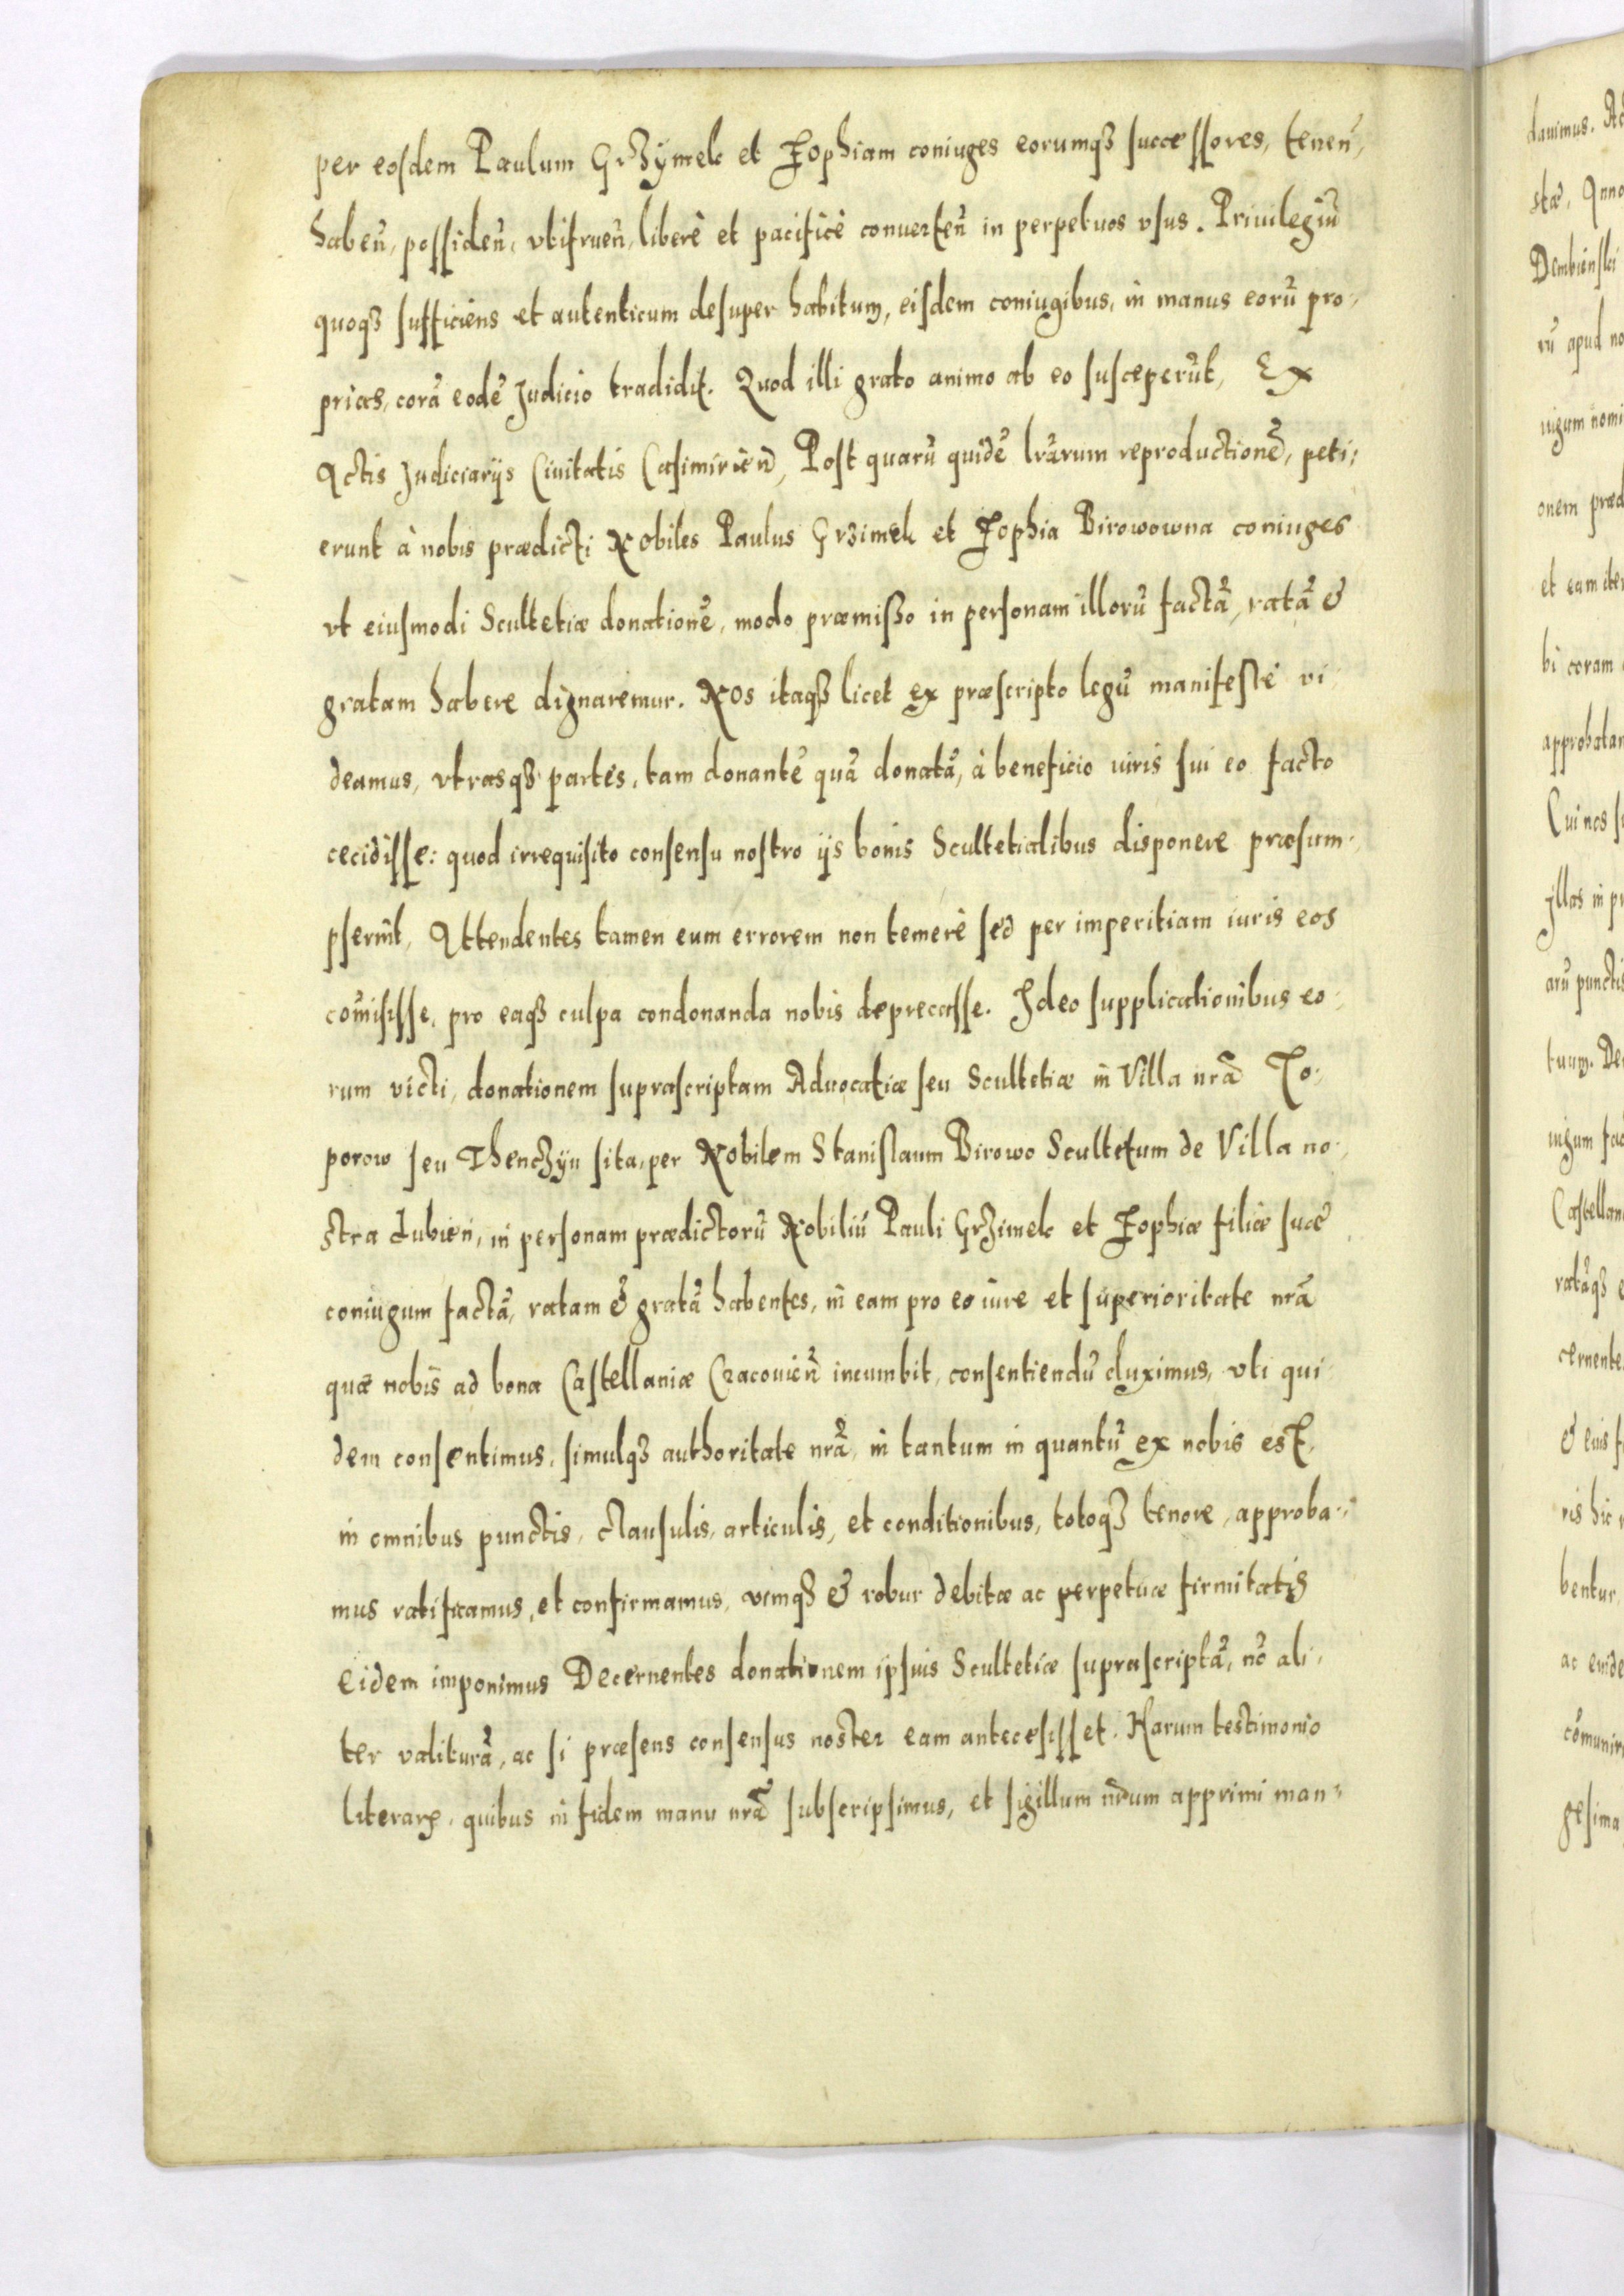 per eosdem Paulum Grzymek et Zophiam coniuges eorumqȝ successores, tenen̄,
haben̄, possiden̄, vtifruen̄, liberè et pacificè conuerten̄ in perpetuos vsus. Priuilegiū
quoqȝ sufficiens et autenticum desuper habitum, eisdem coniugibus, in manus eorū pro-
prias, corā eodē Judicio tradidit. Quod illi grato animo ab eo susceperūt, Ex
Actis Judiciarijs Ciuitatis Casimirien̄, Post quarū quidē lrārum reproductionē, peti-
erunt à nobis prædicti Nobiles Paulus Grzimek et Zophia Birowowna coniuges
vt eiusmodi Scultetiæ donationē, modo præmisso in personam illorū factā, ratā &
gratam habere dignaremur. Nos itaqȝ licet ex præscripto legū manifestè vi-
deamus, vtrasqȝ partes, tam donantē quā donatā, à beneficio iuris sui eo facto
cecidisse: quod irrequisito consensu nostro ijs bonis Scultetialibus disponere præsum-
pserint, Attendentes tamen eum errorem non temerè sed per imperitiam iuris eos
com̄isisse, pro eaqȝ culpa condonanda nobis deprecasse. Ideo supplicationibus eo-
rum victi, donationem suprascriptam Aduocatiæ seu Scultetiæ in Villa nrā To-
porow seu Thenczyn sita, per Nobilem Stanislaum Birowo Scultetum de Villa no-
stra Lubien, in personam prædictorū Nobiliū Pauli Grzimek et Zophiæ filiæ suæ
coniugum factā, ratam & gratā habentes, in eam pro eo iure et superioritate nrā
quæ nobis ad bona Castellaniæ Cracouien̄ incumbit, consentiendū duximus, vti qui-
dem consentimus, simulqȝ authoritate nrā, in tantum in quantū ex nobis est,
in omnibus punctis, clausulis, articulis, et conditionibus, totoqȝ tenore, approba-
mus ratificamus, et confirmamus, vimqȝ & robur debitæ ac perpetuæ firmitatis
eidem imponimus Decernentes donationem ipsius Scultetiæ suprascriptā, nō ali-
ter valiturā, ac si præsens consensus noster eam antecesisset. Harum testimonio
literarꝝ, quibus in fidem manu nrā subscripsimus, et sigillum nr̄um apprimi man-
dauimus. Ac
stæ, Anno
Dembienski
rū apud no
iugum nomi
onem præd
et eam iter
bi coram
approbatam
Cui nos s
illas in pr
arū punctis
tuum. De
iugum fac
Castellan
ratāqȝ e
cernente
& eius f
ris hic
bentur,
ac eide
cōmunir
gesima